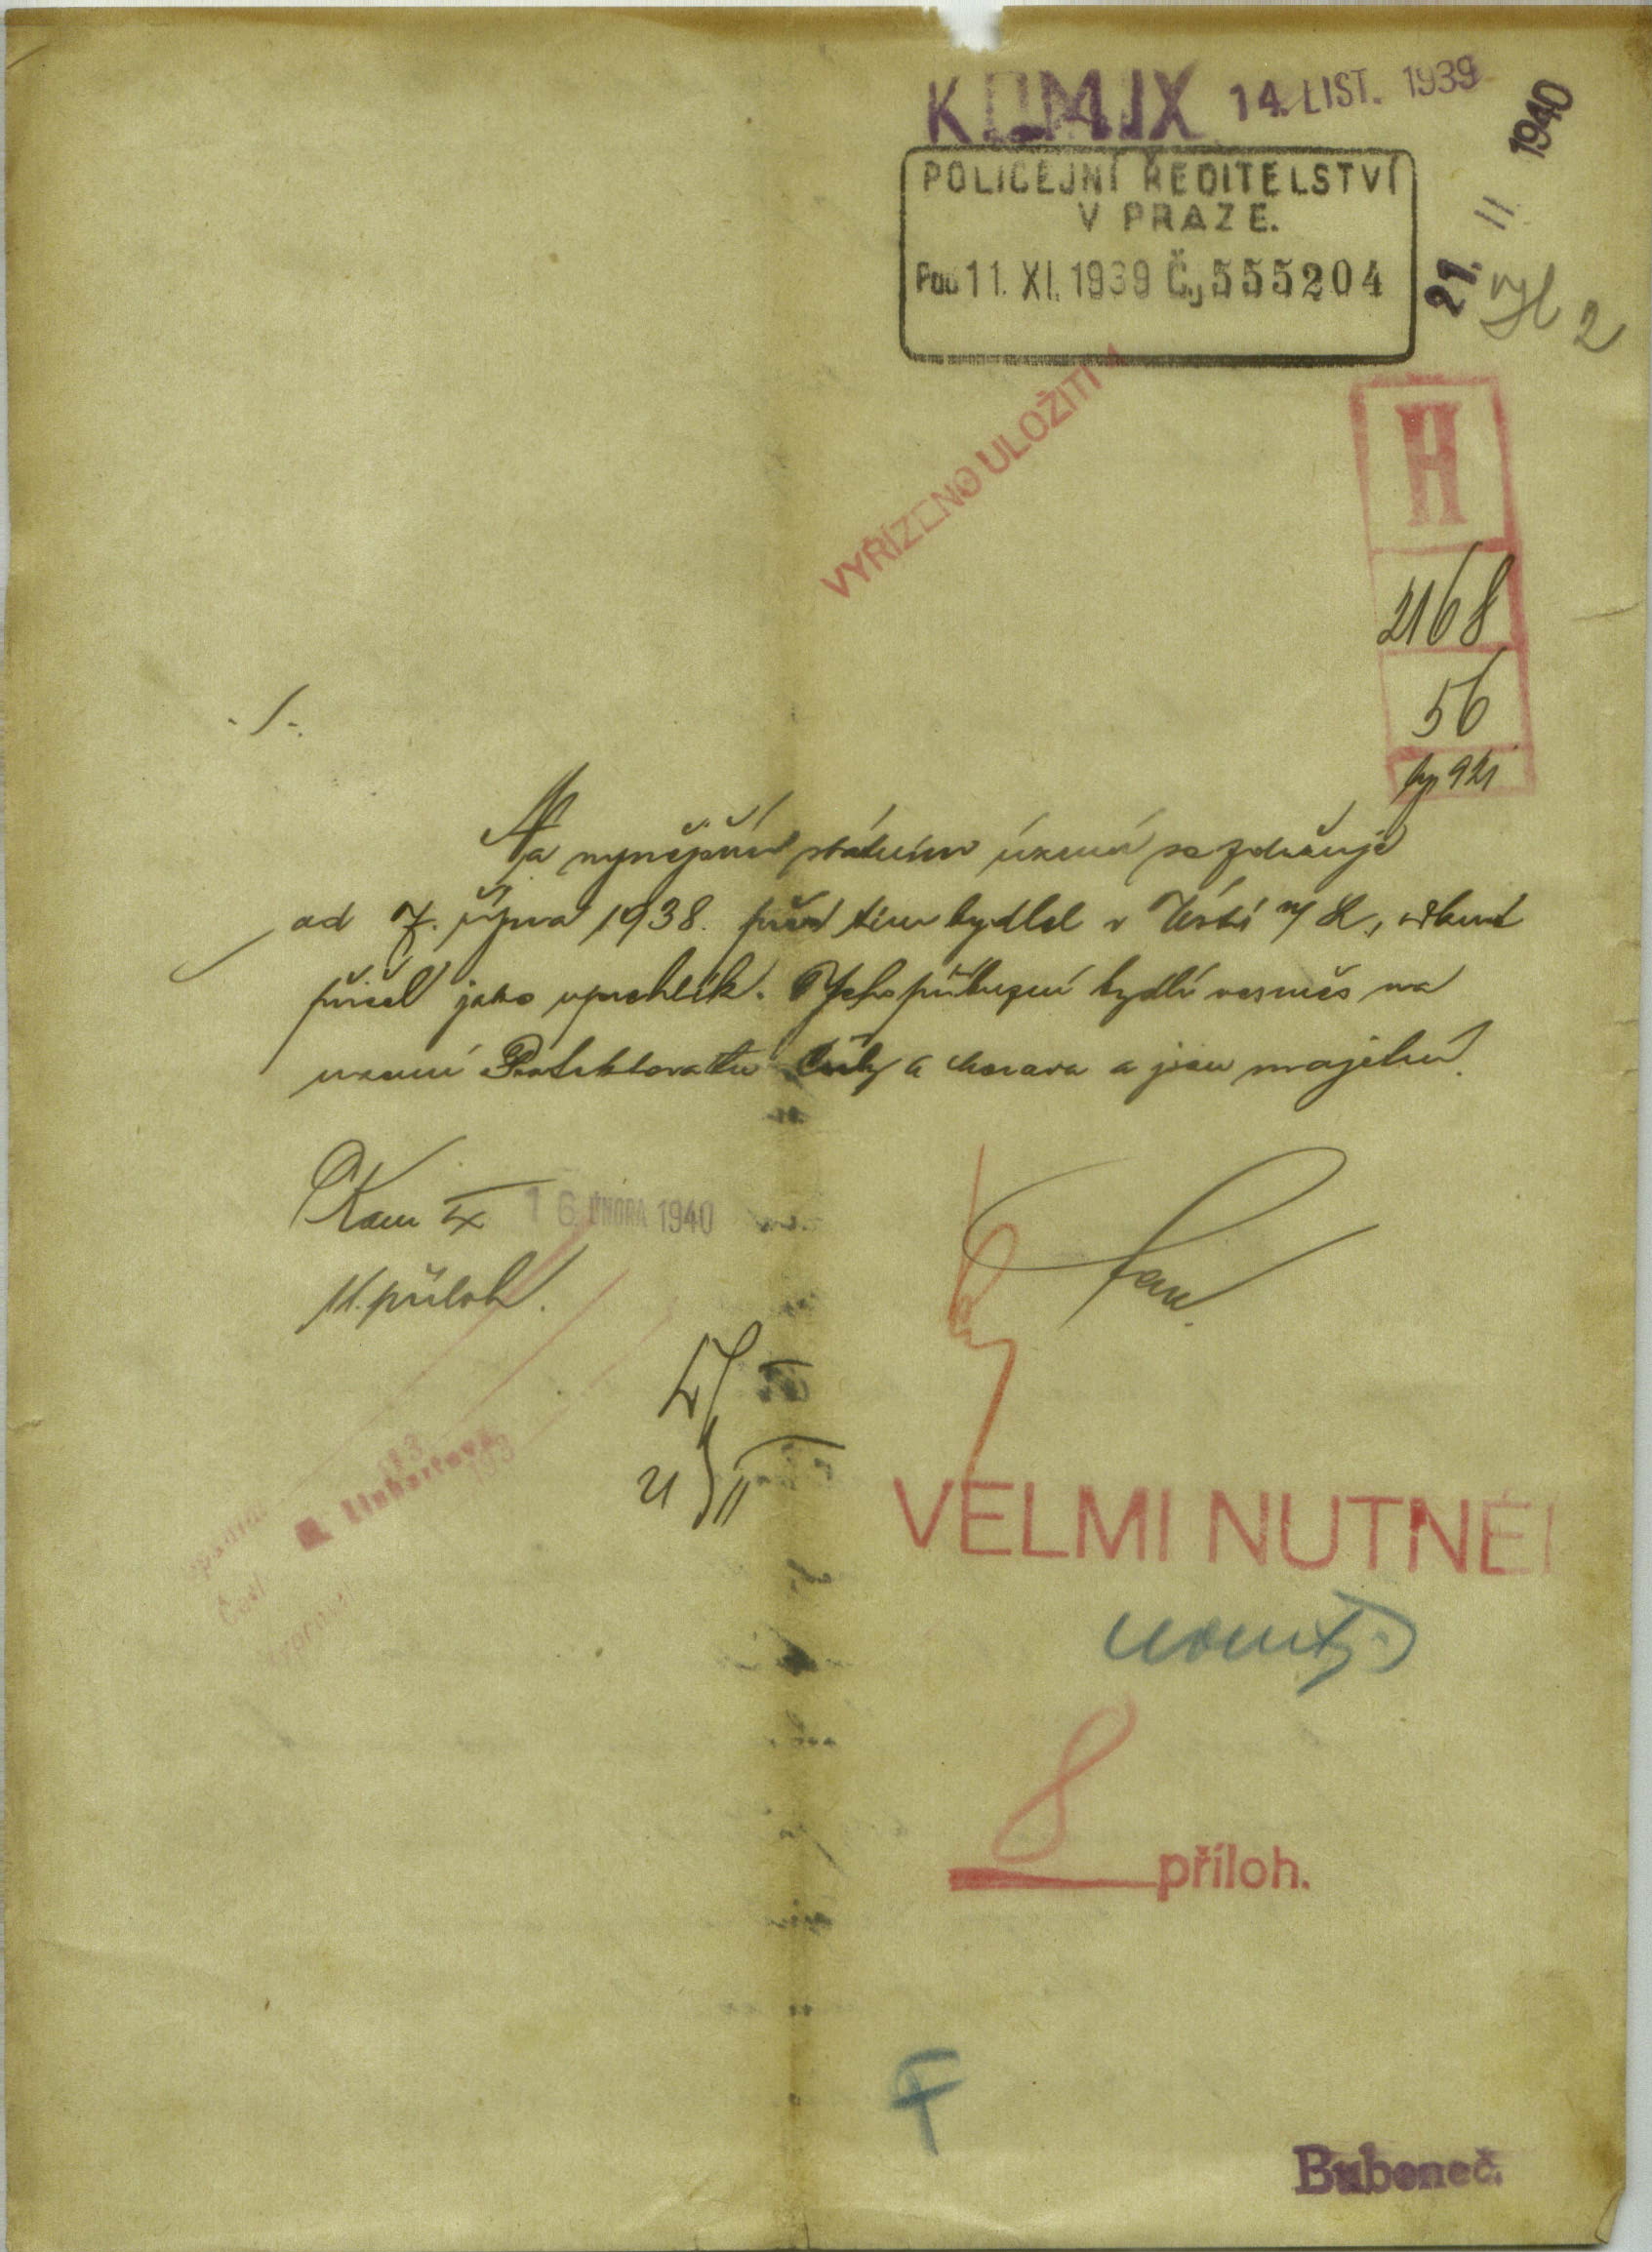 KOM. IX 14. LIST. 1939
POLICEJNÍ ŘEDITELSTVÍ
V PRAZE.
Pod 11. XI. 1939 Č.j 555204
21. II 1940
H 2
VYŘÍZENO ULOŽITI
H
2168
56
921
- 1 -.
Na nynějším státním území se zdržuje
od 7. října 1938. před tím bydlel v Ústí n/L., odkud
přišel jako uprchlík. Jeho příbuzní bydlí vesměs na
území Protektorátu Čechy a Morava a jsou majetní.
Kom IX 16. ÚNORA 1940
11. příloh.
21 II
VELMI NUTNÉ!
8 příloh.
F
Bubeneč.